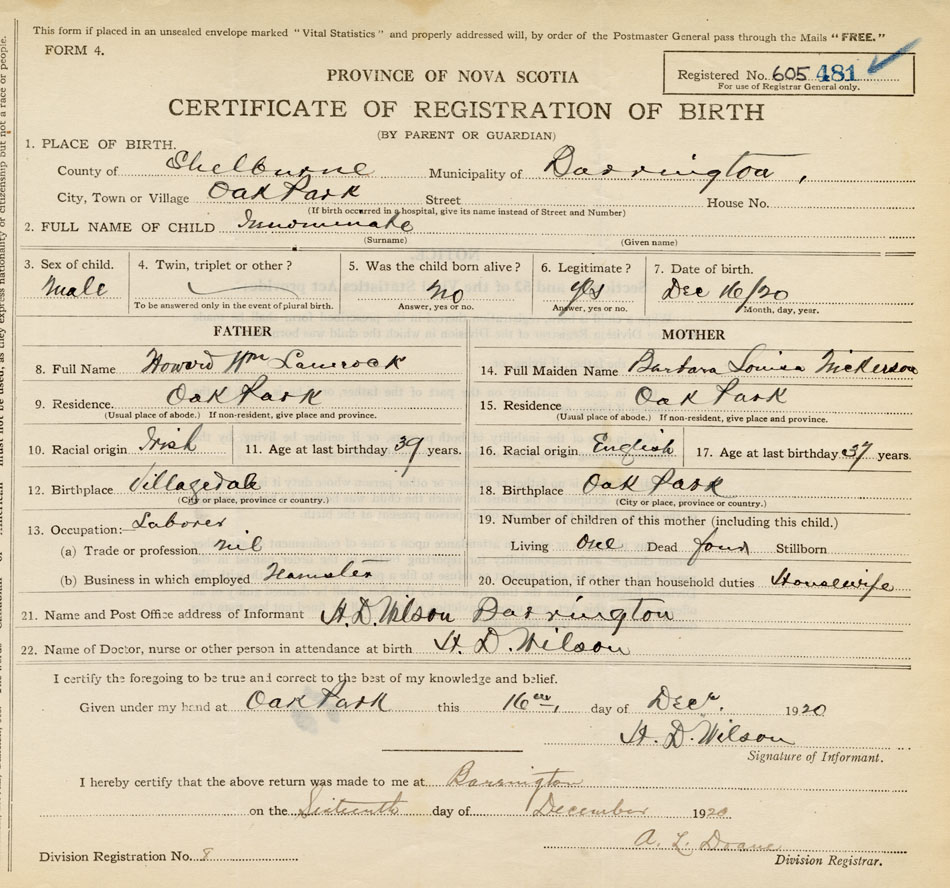 This form if placed in an unsealed envelope marked "Vital Statistics" and properly addressed will, by order of the Postmaster General pass through the Mails "FREE."
FORM 4.
Registered No. 605 481
For use of Registrar General only.
PROVINCE OF NOVA SCOTIA
CERTIFICATE OF REGISTRATION OF BIRTH
(BY PARENT OR GUARDIAN)
1. PLACE OF BIRTH.
County of Shelburne Municipality of Barrington,
City, Town or Village Oak Park Street House No.
(If birth occurred in a hospital, give its name instead of Street and Number)
2. FULL NAME OF CHILD Innominate
(Surname) (Given name)
3. Sex of child. 4. Twin, triplet or other? 5. Was the child born alive? 6. Legitimate? 7. Date of birth.
Male no yes Dec 16/20
To be answered only in the event of plural birth. Answer, yes or no. Answer, yes or no. Month, day, year.
FATHER MOTHER
8. Full Name Howard Wm Lamrock 14. Full Maiden Name Barbara Louisa Nickerson
9. Residence. Oak Park 15. Residence Oak Park
(Usual place of abode.) If non-resident, give place and province. (Usual place of abode.) If non-resident, give place and province.
10. Racial origin Irish 11. Age at last birthday 39 years. 16. Racial origin English 17. Age at last birthday 37 years.
12. Birthplace Villagedale 18. Birthplace Oak Park
(City or place, province or country.) (City or place, province or country.)
13. Occupation:- Laborer. 19. Number of children of this mother (including this child.)
(a) Trade or profession nil Living One Dead Stillborn
(b) Business in which employed Teamster 20. Occupation, if other than household duties Housewife
21. Name and Post Office address of Informant H. D. Wilson Barrington
22. Name of Doctor, nurse or other person in attendance at birth H. D. Wilson
I certify the foregoing to be true and correct to the best of my knowledge and belief.
Given under my hand at Oak Park this 16 day of Decr. 1920
H. D. Wilson
Signature of Informant.
I hereby certify that the above return was made to me at Barrington
on the Sixteenth day of December 1920
A. L. Doane
Division Registration No. 8 Division Registrar.